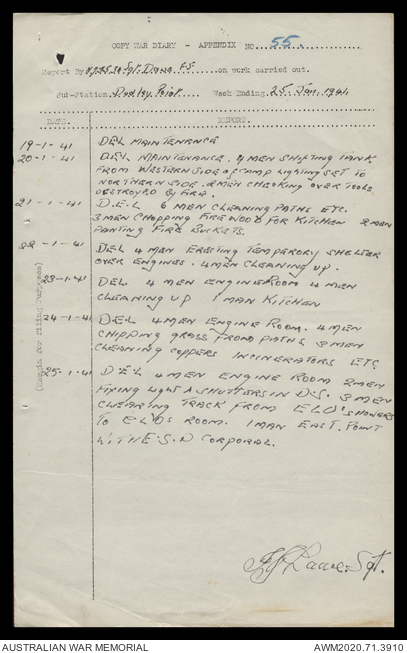 COPY WAR DIARY - APPENDIX NO. 55.
Report By Sgt. F S on work carried out.
Sub-Station. Dudley Point. Week Ending. 25 Jan. 1941.
DATE. REPORT.
19-1-41 DEL MAINTENANCE
20-1-41 DEL MAINTENANCE. 4 MEN SHIFTING TANK
FROM WESTERN SIDE OF CAMP LIGHTING SET TO
NORTHERN SIDE. 2 MEN CHECKING OVER TOOLS
DESTROYED BY FIRE.
21-1-41 D.E.L 6 MEN CLEANING PATHS ETC.
3 MEN CHOPPING FIREWOOD FOR KITCHEN 2 MEN
PANTING FIRE BUCKETS.
22-1-41 DEL 4 MEN ERECTING TEMPERORY SHELTER
OVER ENGINES. 4 MEN CLEANING UP.
23-1-41 DEL 4 MEN ENGINEROOM 4 MEN
CLEANING UP 1 MAN KITCHEN
24-1-41 D.E.L 4 MEN ENGINE ROOM. 4 MEN
CHIPPING GRASS FROM PATHS 3 MEN
CLEANING COPPERS INCINERATORS ETC
25-1-41 D.E.L 4 MEN ENGINE ROOM 2 MEN
FIXING LIGHT & SHUTTERS IN D.S. 3 MEN
CLEARING TRACK FROM E L O'S SHOWERS
TO E L O'S ROOM. 1 MAN EAST. POINT
WITH E.S.D CORPORAL.
(Margin for Filing Purposes)
Sgt.
AUSTRALIAN WAR MEMORIAL AWM2020.71.3910